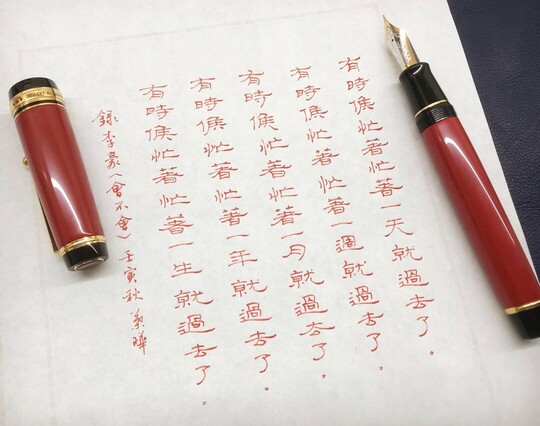 有時候忙著忙著一天就過去了。
有時候忙著忙著一週就過去了。
有時候忙著忙著一月就過去了。
有時候忙著忙著一年就過去了。
有時候忙著忙著一生就過去了。
錄李豪〈會不會〉壬寅秋 葉曄